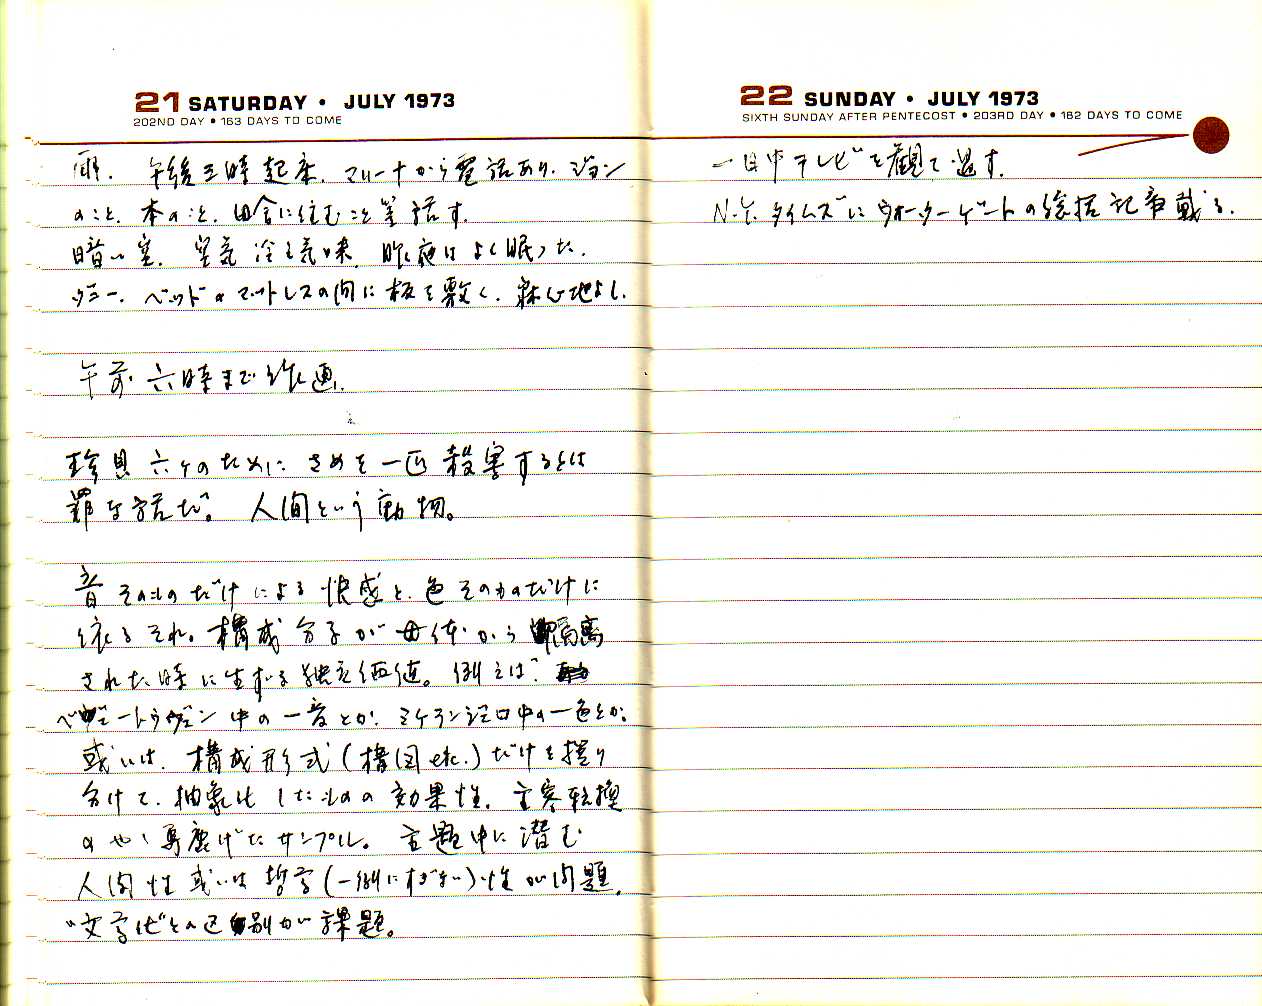 21 SATURDAY • JULY 1973
202ND DAY • 163 DAYS TO COME
雨. 午後三時起床. マリーナから電話あり. ジョン
のこと、本のこと、田舎に住むこと等話す.
暗い空. 空気冷え気味. 昨夜はよく眠った.
ベッドのマットレスの間に板を敷く. 寝心地よし.
午前六時まで作画.
珍貝六ケのためにさめを一匹殺害するとは
罪な話だ。 人間という動物。
音そのものだけによる快感と、色そのものだけに
依るそれ。構成分子が母体から隔離
された時に生ずる独立価値。例えば
ベートーヴェン中の一音とか、ミケランジェロ中の一色とか。
或いは、構成形式(構図etc.)だけを取り
分けて、抽象化したものの効果性。主客転換
のやゝ馬鹿げたサンプル。 主題中に潜む
人間性或いは哲学(一例にすぎない)性が問題。
"文学化"との区別が課題。
22 SUNDAY • JULY 1973
SIXTH SUNDAY AFTER PENTECOST • 203RD DAY • 162 DAYS TO COME
一日中テレビを観て過す.
N.Y.タイムズにウォーターゲートの総括記事載る.